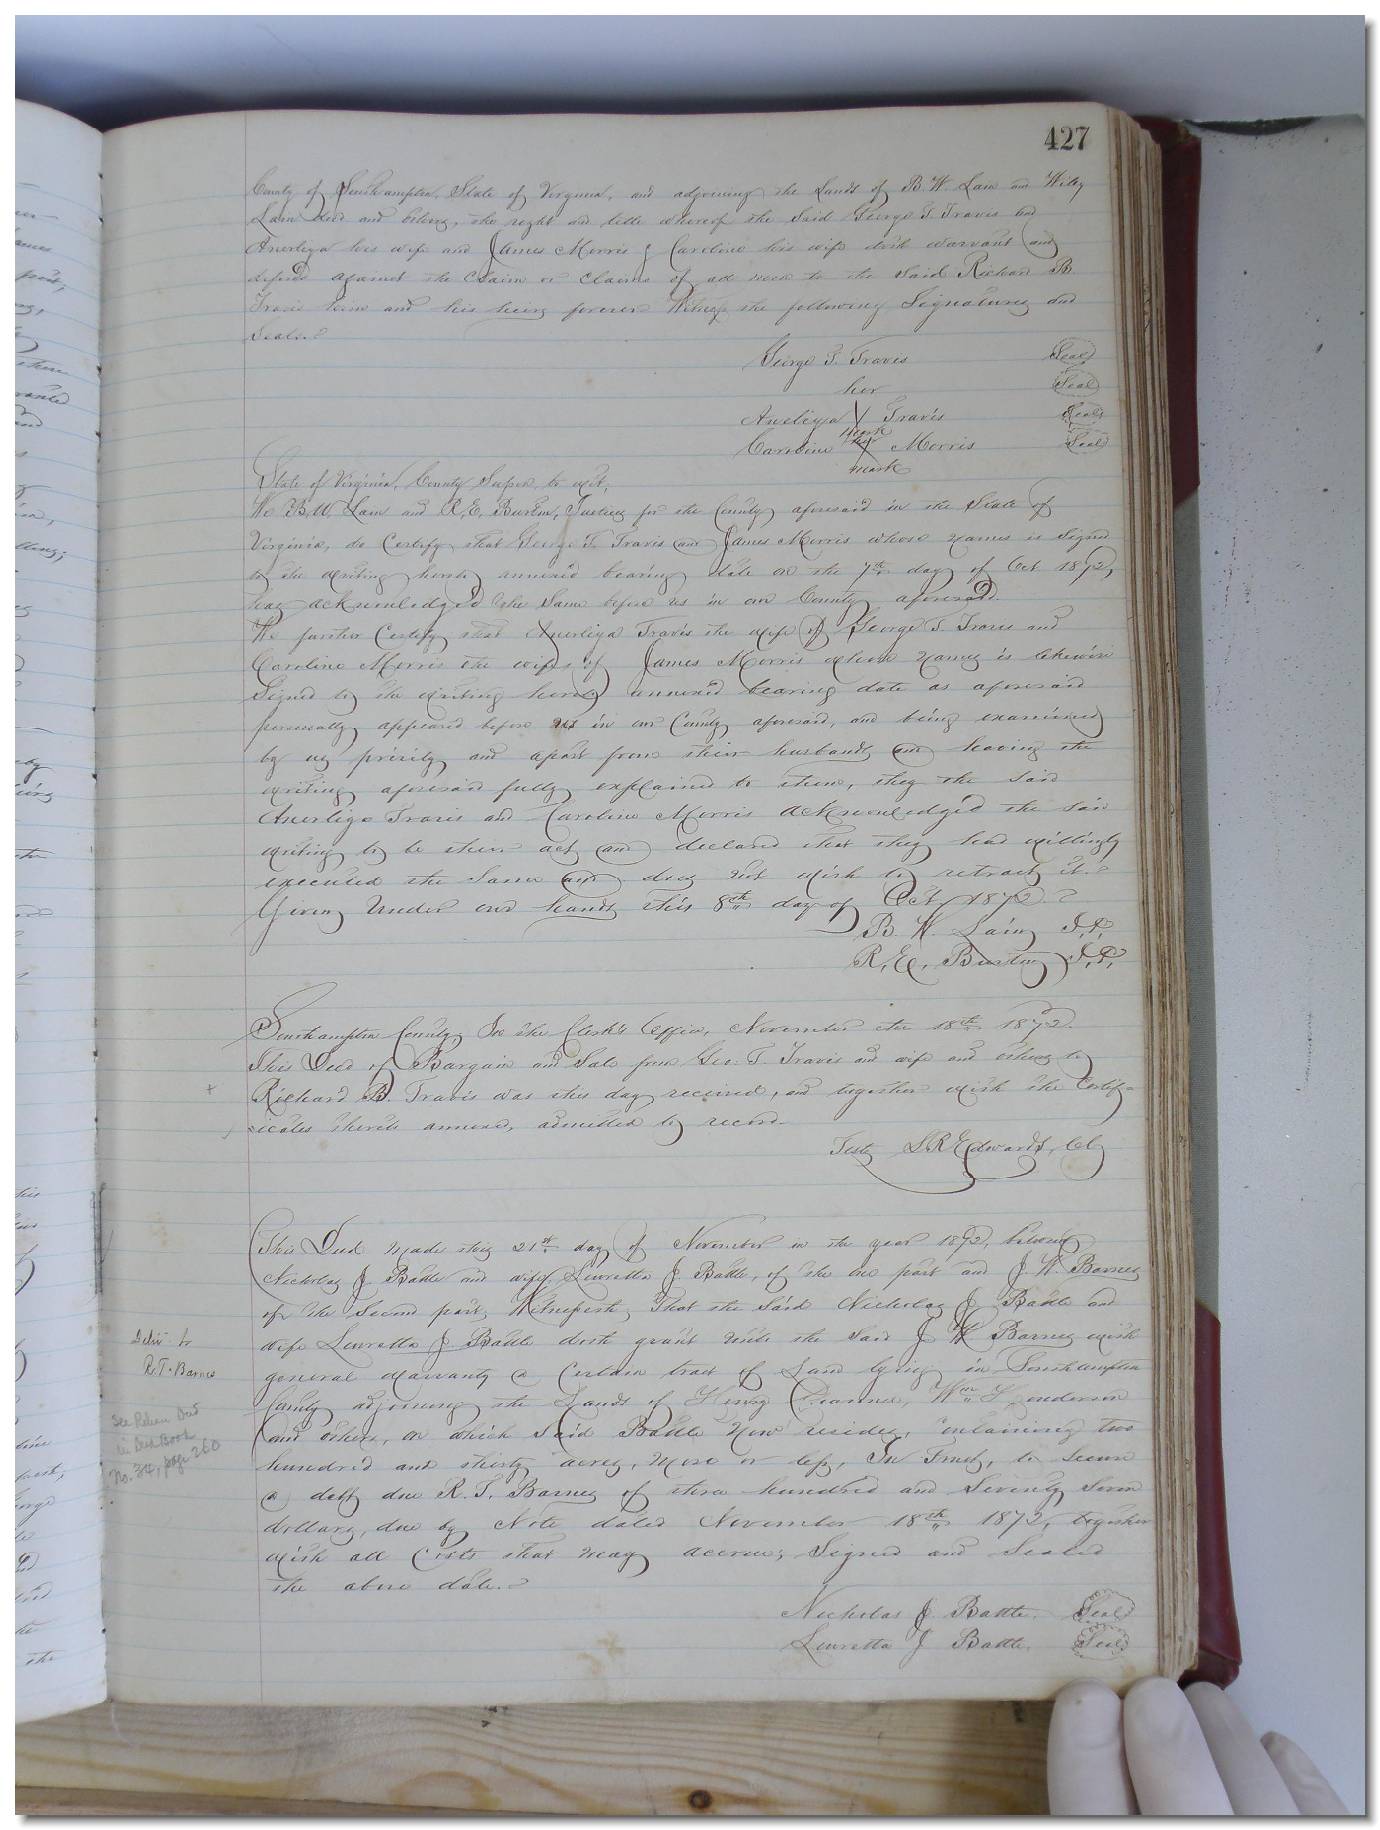 427
County of Southampton, State of Virginia, and adjoining the Lands of B. W. Lain and Wiley
Lain decd and others, the right and title whereof the said George T. Travis and
Anerliza his wife and James Morris & Caroline his wife doth warrant and
defend against the claim or claims of all men to the said Richard B
Travis him and his heirs forever Witness the following Signatures and
Seals.
George T. Travis Seal
her Seal
Anerliza X Travis Seal
mark
Caroline her X Morris Seal
mark
State of Virginia, County Sussex to wit,
We B. W. Lain and R. E. Justices for the County aforesaid in the State of
Virginia, do Certify that George T. Travis and James Morris whose names is signed
to the writing hereto annexed bearing date on the 7th day of Oct 1872,
has acknowledged the same before us in our County aforesaid.
We further Certify that Anerliza Travis the wife of George T. Travis and
Caroline Morris the wife of James Morris whose names is likewise
Signed to the writing hereto annexed bearing date as aforesaid
personally appeared before us in our County aforesaid, and being examined
by us privily and apart from their husbands and having the
writing aforesaid fully explained to them, they the said
Anerliza Travis and Caroline Morris acknowledged the said
writing to be their act and declared that they had willingly
executed the same and does not wish to retract it.
Given under our hands this 8th day of Oct 1872.
B. W. Lain J.P.
R. E. J.P.
Southampton County, In the Clerk's Office, November the 18th 1872.
This Deed of Bargain and Sale from Geo. T. Travis and wife and others to
Richard B. Travis was this day received, and together with the Certif-
icates thereto annexed, admitted to record.
Teste L R Edwards, Clk
This Deed made this 21st day of November in the year 1872, between
Nicholas J. Battle and wife Louretta J. Battle, of the one part and J. W. Barnes
of the second part, Witnesseth, That the said Nicholas J Battle and
wife Louretta J. Battle doth grant unto the said J W Barnes with
general warranty a certain tract of Land lying in Southampton
County adjoining the Lands of Henry Wm H enderson
and others, on which said Battle now resides, containing two
hundred and thirty acres, more or less, In Trust, to secure
a debt due R. T. Barnes of three hundred and seventy seven
dollars, due by Note dated November 18th 1872, together
with all costs that may accrue; Signed and Sealed
the above date.
Nicholas J Battle. Seal
Louretta J Battle. Seal
Deliv to
R. T. Barnes
See Release Deed
in Deed Book
No. 34, page 260